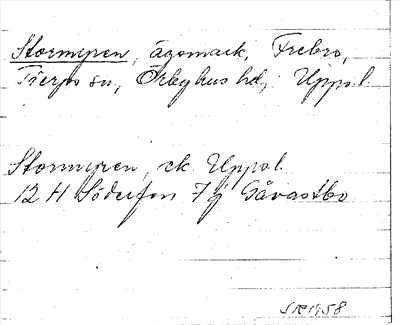 Stormyren, ägomark, Frebro,
Tierps sn, Örbyhus hd, Uppsl.
Stormyren, ek. Uppsl.
12 H Söderfon 7 j Gåvastbo
1958